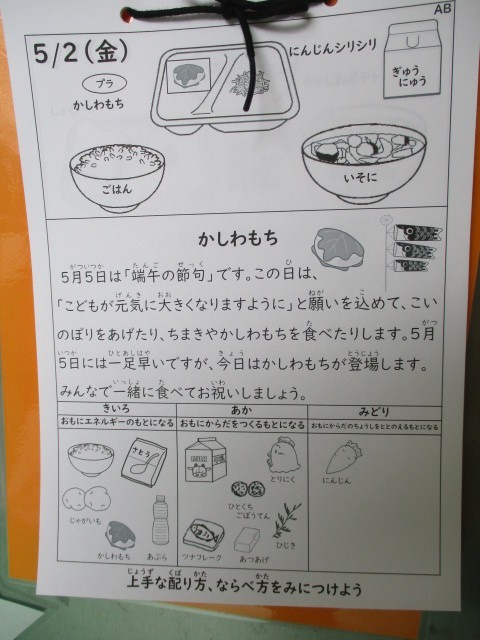 AB
5/2（金）
にんじんシリシリ
プラ
かしわもち
ぎゅう
にゅう
ごはん
いそに
かしわもち
5月5日は「端午の節句」です。この日は、
「こどもが元気に大きくなりますように」と願いを込めて、こい
のぼりをあげたり、ちまきやかしわもちを食べたりします。5月
5日には一足早いですが、今日はかしわもちが登場します。
みんなで一緒に食べてお祝いしましょう。
きいろ
おもにエネルギーのもとになる
さとう
じゃがいも
かしわもち
あぶら
あか
おもにからだをつくるもとになる
とりにく
ひとくち
ごぼうてん
ひじき
ツナフレーク
あつあげ
みどり
おもにからだのちょうしをととのえるもとになる
にんじん
上手な配り方、ならべ方をみにつけよう